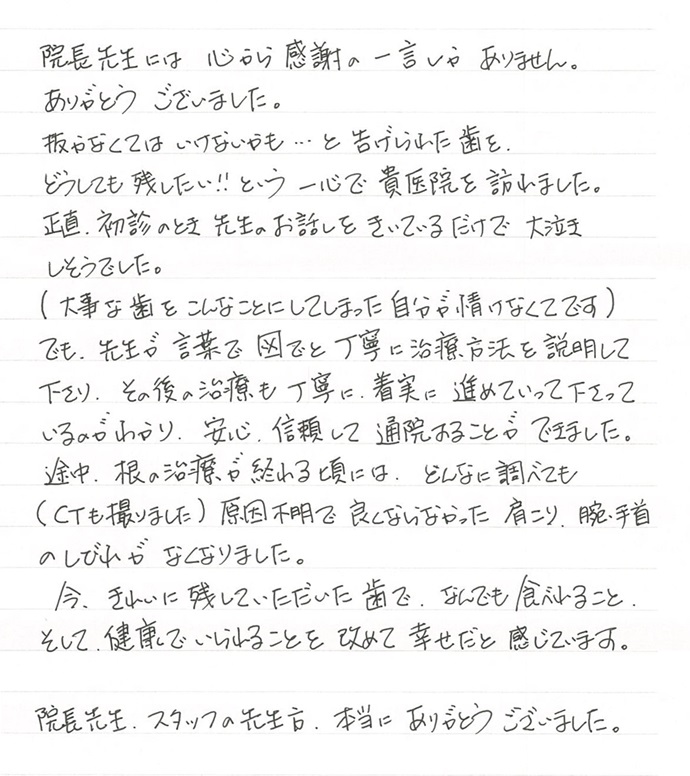 院長先生には 心から 感謝の 一言しか ありません。
ありがとう ございました。
抜かなくては いけないかも…と 告げられた 歯を、
どうしても 残したい!! という 一心で 貴医院を 訪れました。
正直、初診のとき 先生のお話しを きいているだけで 大泣き
しそうでした。
(大事な歯を こんなことにしてしまった 自分が 情けなくてです)
でも、先生が 言葉で 図でと 丁寧に 治療方法を 説明して
下さり、その後の治療も 丁寧に、着実に 進めていって下さって
いるのがわかり、安心、信頼して 通院することが できました。
途中、根の治療が 終わる頃には、どんなに 調べても
(CTも撮りました) 原因不明で 良くならなかった 肩こり、腕・手首
のしびれが なくなりました。
今、きれいに 残していただいた 歯で、なんでも 食べれること、
そして、健康で いられることを 改めて 幸せだと 感じています。
院長先生、スタッフの先生方、本当に ありがとう ございました。